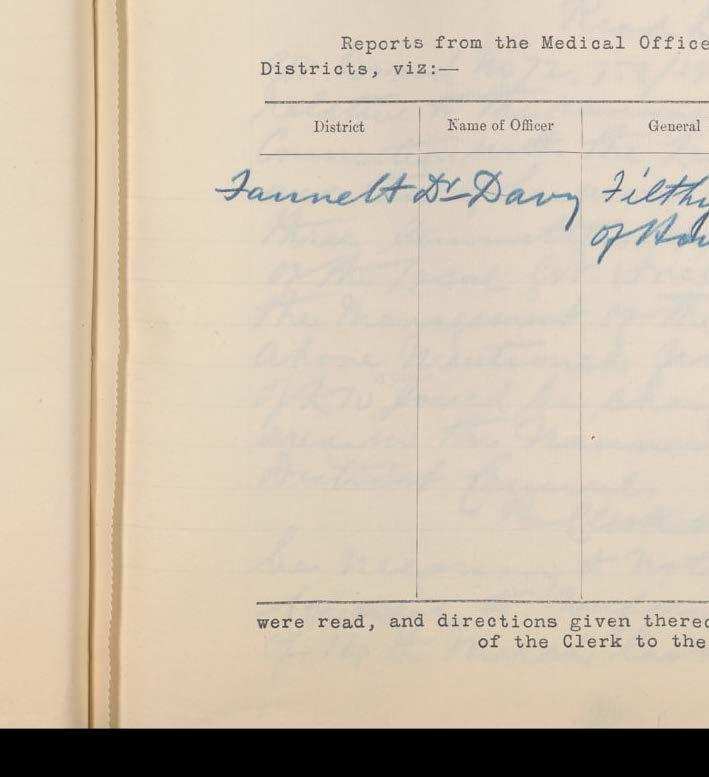 Reports from the Medical Office
Districts, viz:—
District Name of Officer General
Fannett Dr Davy Filthy
of Hou
were read, and directions given thereo
of the Clerk to the